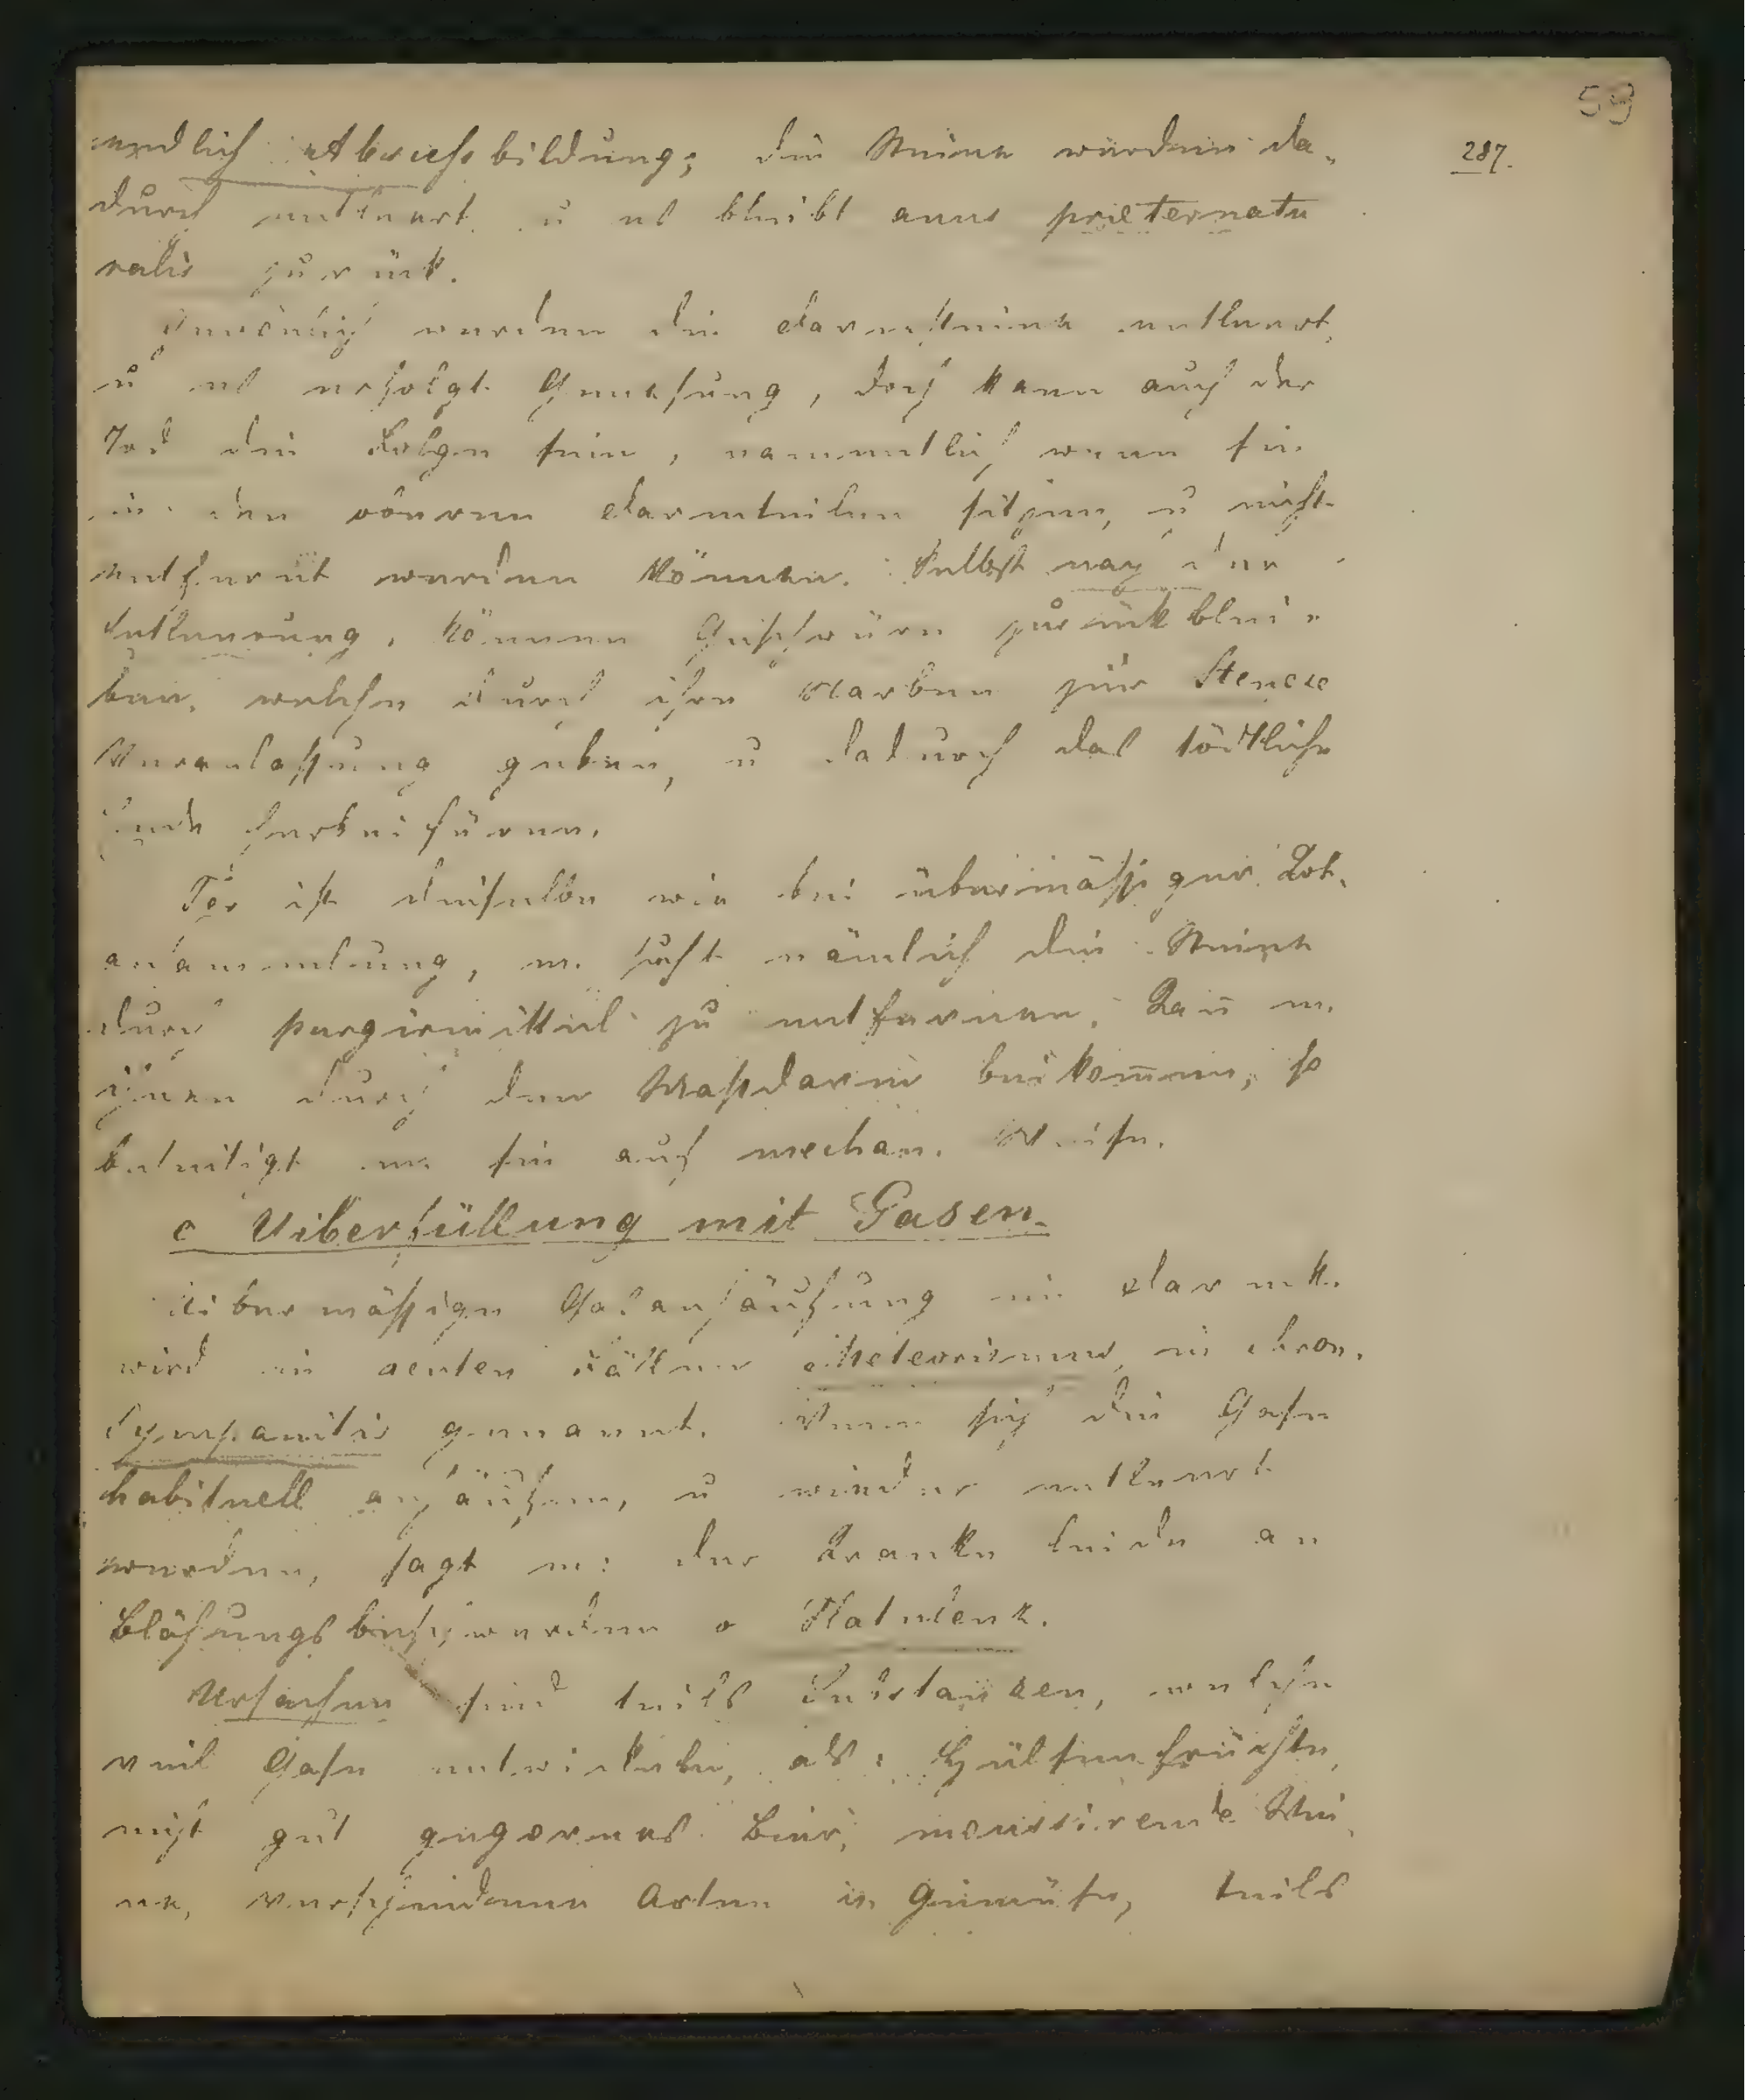 59
287.
endlich Abscessbildung; die Steine werden da-
durch entleert u es bleibt anus præternatu
ralis zurük.
Gewönlich werden die Darmsteine entleert,
u es erfolgt Genesung, doch kann auch der
Tod die Folgen sein, namentlich wenn sie
in den obern Darmteilen sitzen, u nicht
entfernt werden können. Selbst nach der
Entleerung, können Geschwüre zurükblei-
ben, welche durch ihre Narben zur Stenose
Veranlassung geben, u dadurch das tödtliche
Ende herbeifüren.
Ter ist dieselbe wie bei übermässiger Kot-
ansammlung, m. sucht nämlich die Steine
durch purgirmittel zu entfernen. Kañ m.
ihnen durch den Mastdarm beikom̅en, so
beseitigt m. sie auf mechan. Weise.
c Uiberfüllung mit Gasen.
Uibermässige Gasanhäufung im Darmk.
wird in acuten Fällen Meteorismus, in chron.
Tympanitis genannt. Wenn sich die Gase
habituell anhäufen, u wieder entleert
werden, sagt m: der Kranke leide an
Bläsungsbeschwerden o Flatulenz.
Ursachen sind teils Substanzen, welche
viel Gase entwickeln, als: Hülsenfrüchte,
nicht gut gegorenes Bier, moussirende Wei-
ne, verschiedene Arten v. Gemüse, teils